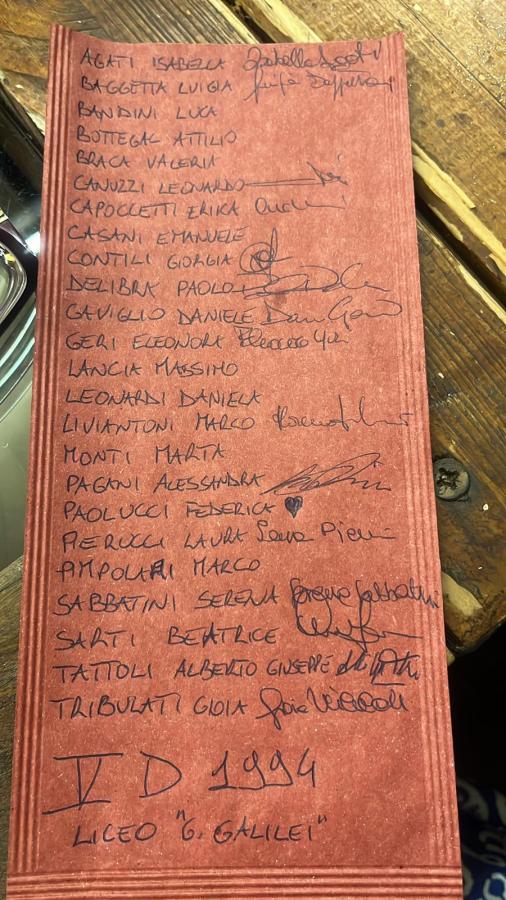 AGATI ISABELLA
BAGGETTA LUIGIA
BANDINI LUCA
BOTTEGAL ATTILIO
BRACA VALERIA
CANUZZI LEONARDO
CAPOCCETTI ERIKA
CASANI EMANUELE
CONTILI GIORGIA
DELIBRA PAOLO
GAVIGLIO DANIELE
GERI ELEONORA
LANCIA MASSIMO
LEONARDI DANIELA
LIVIANTONI MARCO
MONTI MARTA
PAGANI ALESSANDRA
PAOLUCCI FEDERICA ♥
PIERUCCI LAURA
AMPOLARI MARCO
SABBATINI SERENA Serena Sabbatini
SARTI BEATRICE
TATTOLI ALBERTO GIUSEPPE
TRIBULATI GIOIA
V D 1994
LICEO "G. GALILEI"